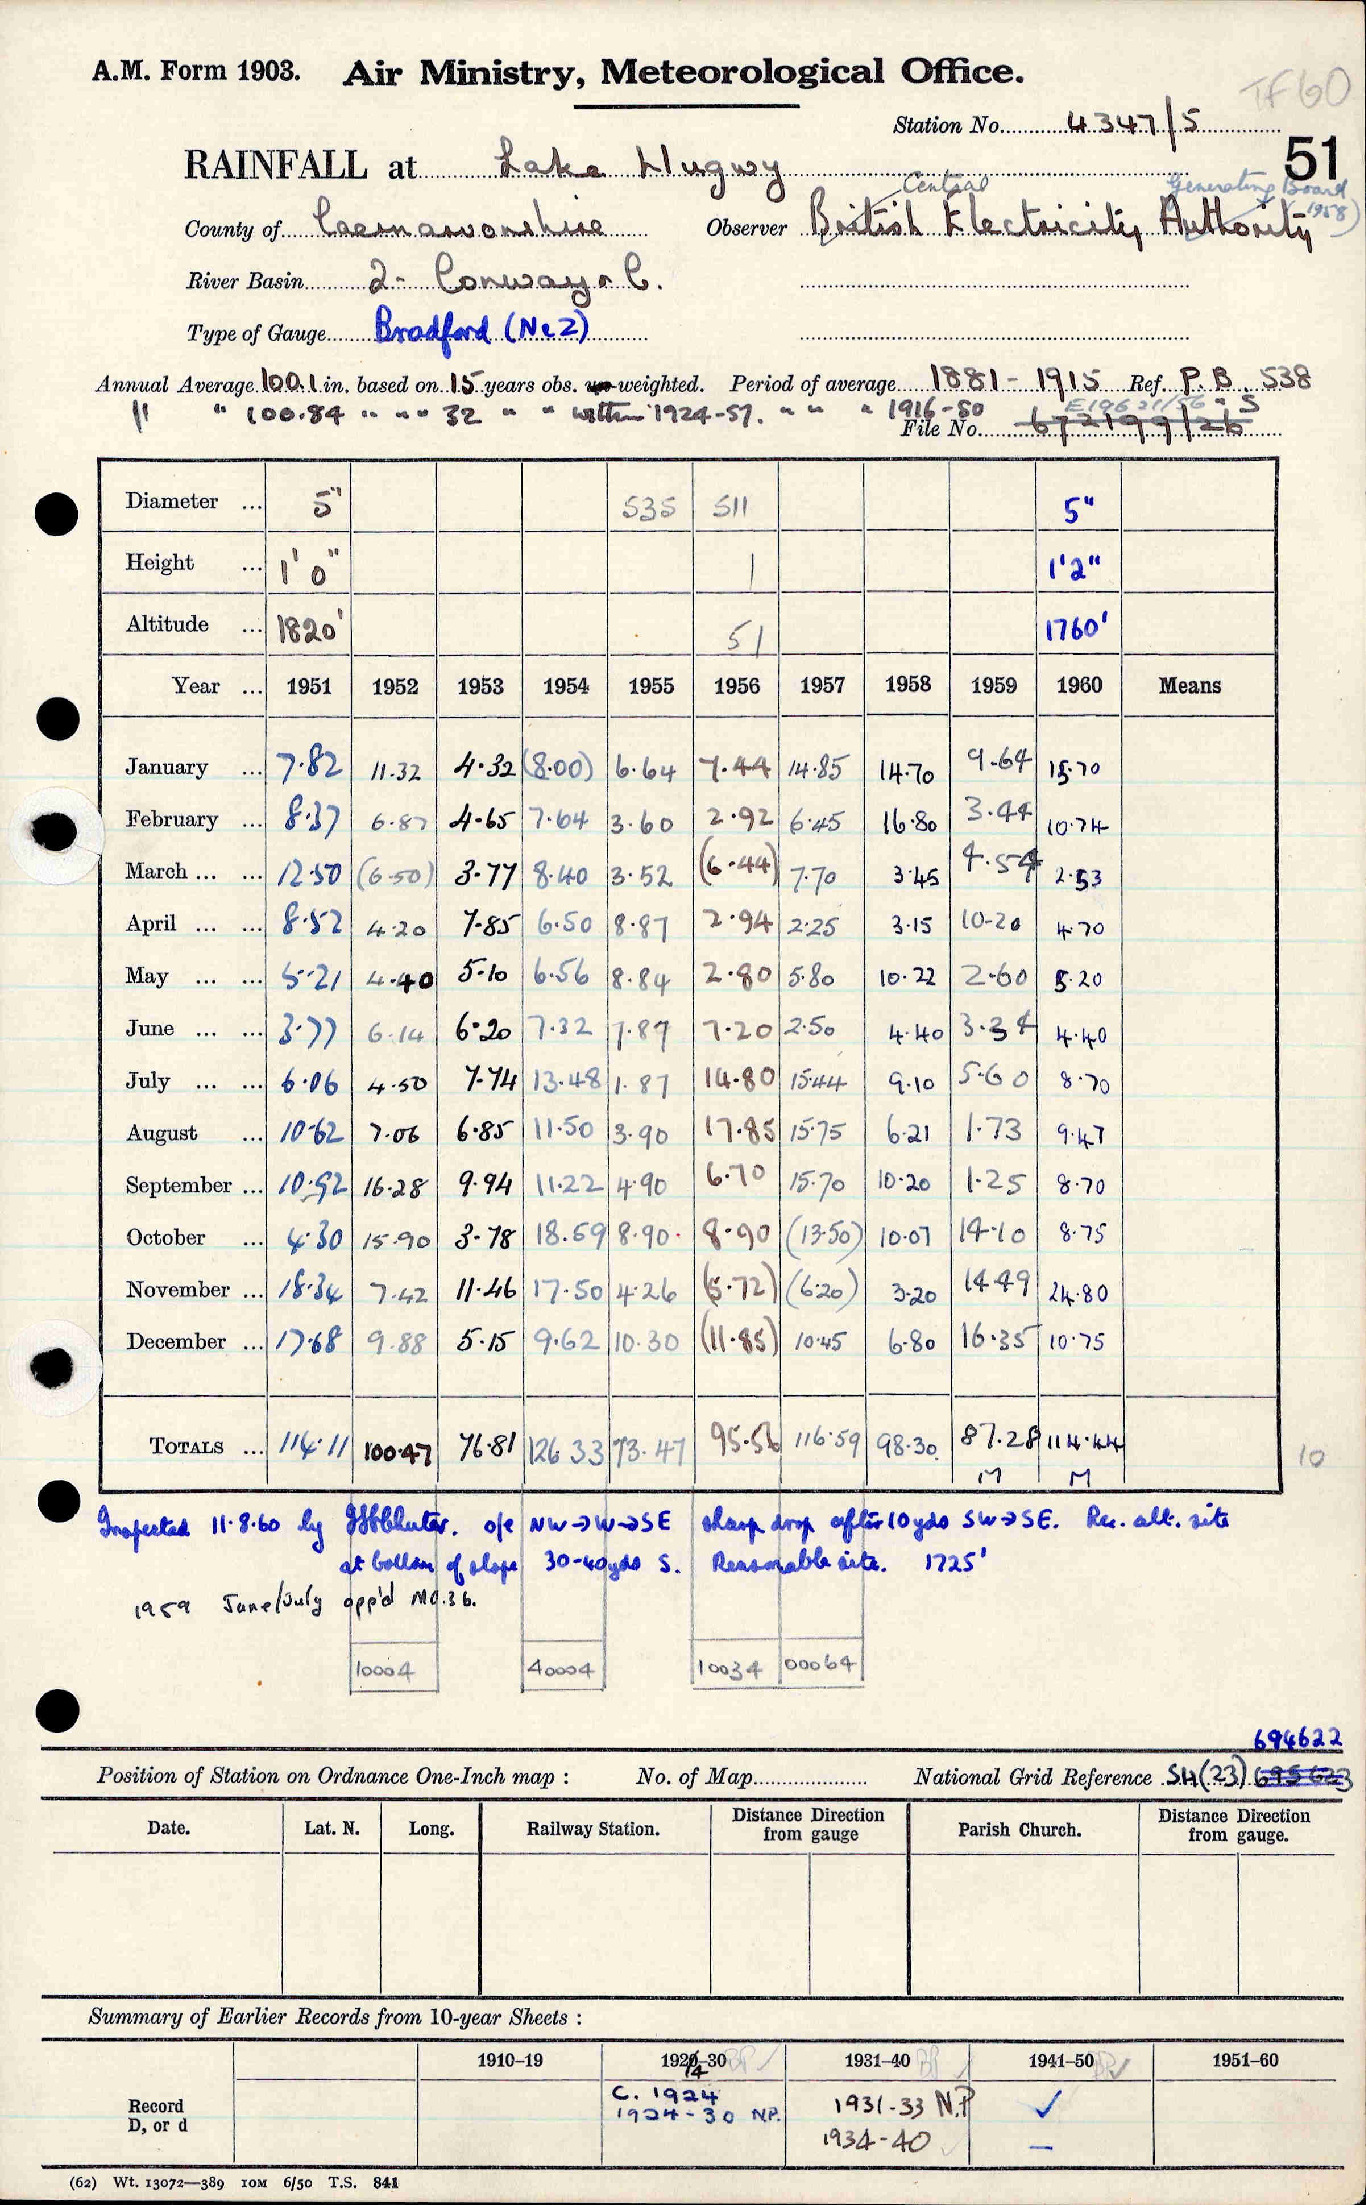 TF60
A.M. Form 1903. Air Ministry, Meteorological Office.
Station No. 4347/5
51
RAINFALL at Lake Llugwy
Central Generating Board (1958)
County of Caernarvonshire Observer British Electricity Authority
River Basin 2- Conway & C.
Type of Gauge Bradford (Ne2)
Annual Average 100.1 in. based on 15 years obs. un-weighted. Period of average 1881-1915 Ref. P.B. 538
" " 100.84 " " " 32 " " within 1924-57. " " " 1916-50 " 5
E19621/56
File No. 672199/26
Diameter ... 5" 535 511 5"
Height ... 1' 0" 1 1'2"
Altitude ... 1820' 51 1760'
Year ... 1951 1952 1953 1954 1955 1956 1957 1958 1959 1960 Means
January ... 7.82 11.32 4.32 (8.00) 6.64 7.44 14.85 14.70 9.64 15.70
February ... 8.37 6.87 4.65 7.64 3.60 2.92 6.45 16.80 3.44 10.74
March ... ... 12.50 (6.50) 3.77 8.40 3.52 (6.44) 7.70 3.45 4.54 2.53
April ... ... 8.52 4.20 7.85 6.50 8.87 2.94 2.25 3.15 10.20 4.70
May ... ... 5.21 4.40 5.10 6.56 8.84 2.80 5.80 10.22 2.60 5.20
June ... ... 3.77 6.14 6.20 7.32 7.87 7.20 2.50 4.40 3.34 4.40
July ... ... 6.06 4.50 7.74 13.48 1.87 14.80 15.44 9.10 5.60 8.70
August ... 10.62 7.06 6.85 11.50 3.90 17.85 15.75 6.21 1.73 9.47
September ... 10.92 16.28 9.94 11.22 4.90 6.70 15.70 10.20 1.25 8.70
October ... 4.30 15.90 3.78 18.59 8.90 8.90 (13.50) 10.07 14.10 8.75
November ... 18.34 7.42 11.46 17.50 4.26 (5.72) (6.20) 3.20 14.49 24.80
December ... 17.68 9.88 5.15 9.62 10.30 (11.85) 10.45 6.80 16.35 10.75
TOTALS ... 114.11 100.47 76.81 126.33 73.47 95.56 116.59 98.30 87.28 114.44
M M
10
Inspected 11.8.60 by o/e NW→W→SE sharp drop after 10yds SW→SE. Rec. alt. site
at bottom of slope 30-40yds S. Reasonable site. 1725'
1959 June/July app'd M0.3b.
10004 40004 10034 00064
694622
Position of Station on Ordnance One-Inch map : No. of Map National Grid Reference SH(23) 695623
Date. Lat. N. Long. Railway Station. Distance Direction from gauge Parish Church. Distance Direction from gauge.
Summary of Earlier Records from 10-year Sheets :
1910–19 1920–30 BP ✓ 1931–40 BP ✓ 1941–50 BP ✓ 1951–60
Record D, or d
C. 1924 1931-33 N.P ✓
1924-30 N.P. 1934-40 ✓ –
(62) Wt. 13072—389 10M 6/50 T.S. 841